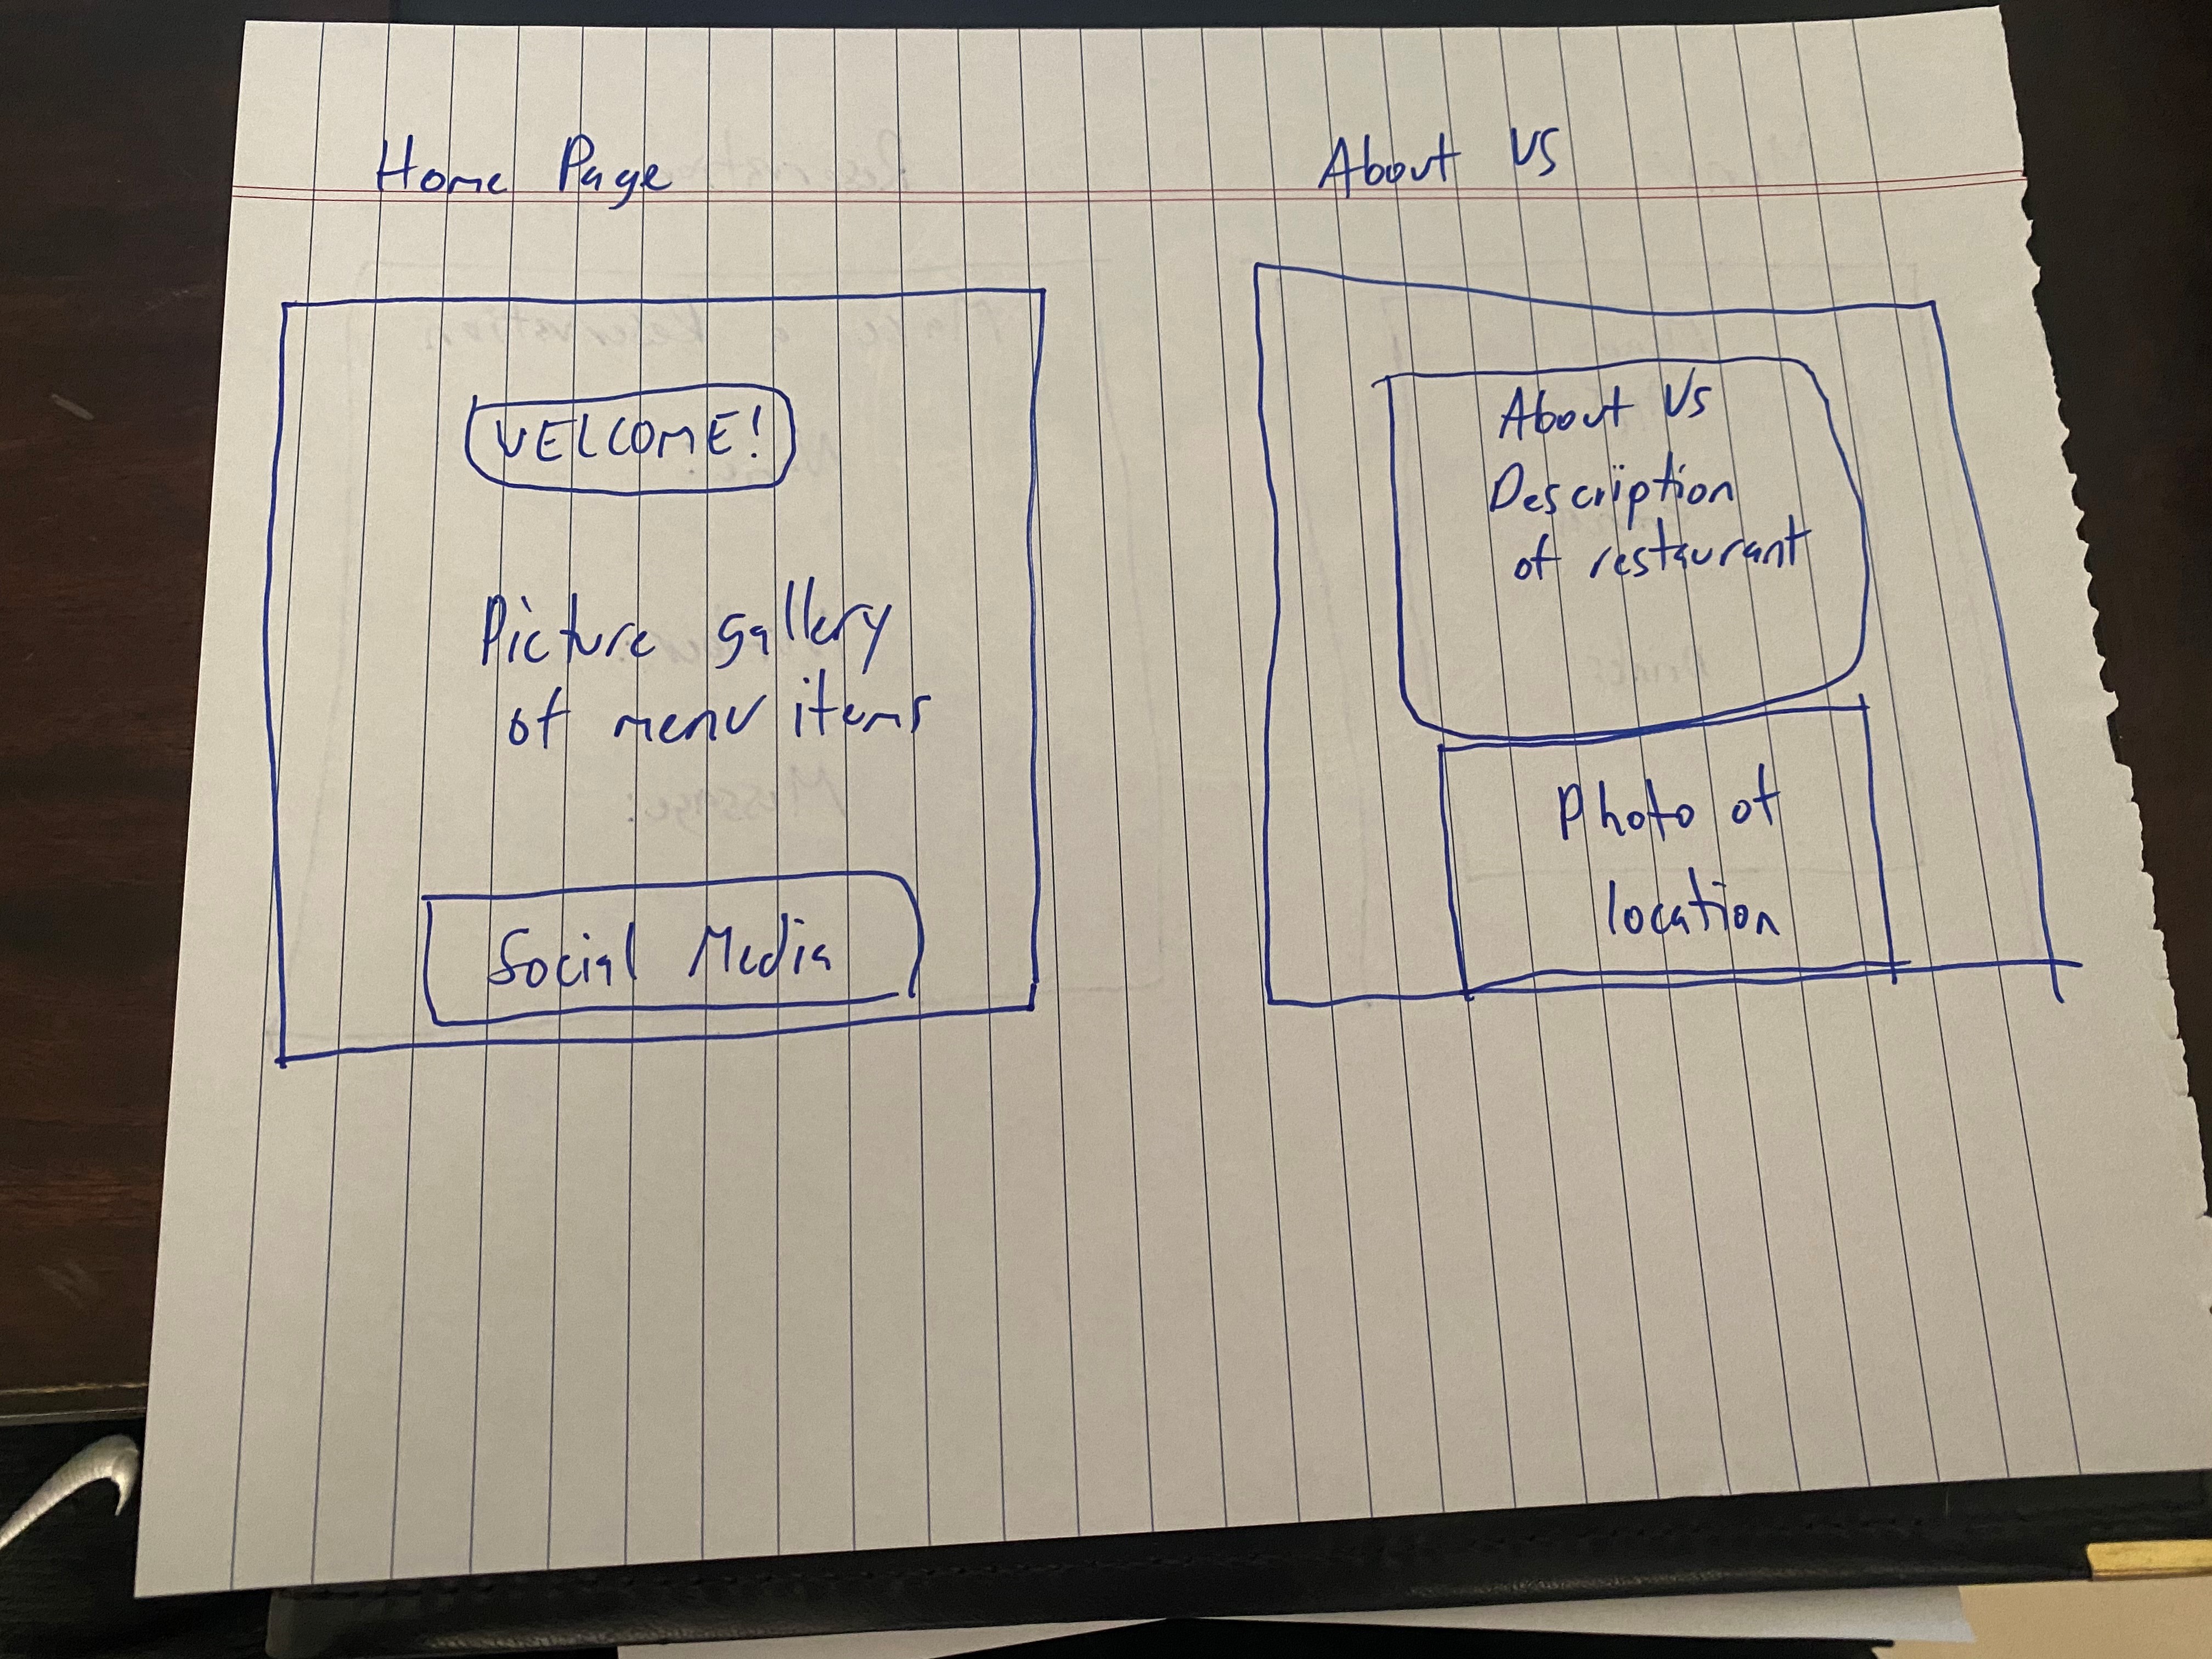 Home Page
About US
WELCOME!
Picture gallery
of menu items
Social Media
About Us
Description
of restaurant
Photo of
location